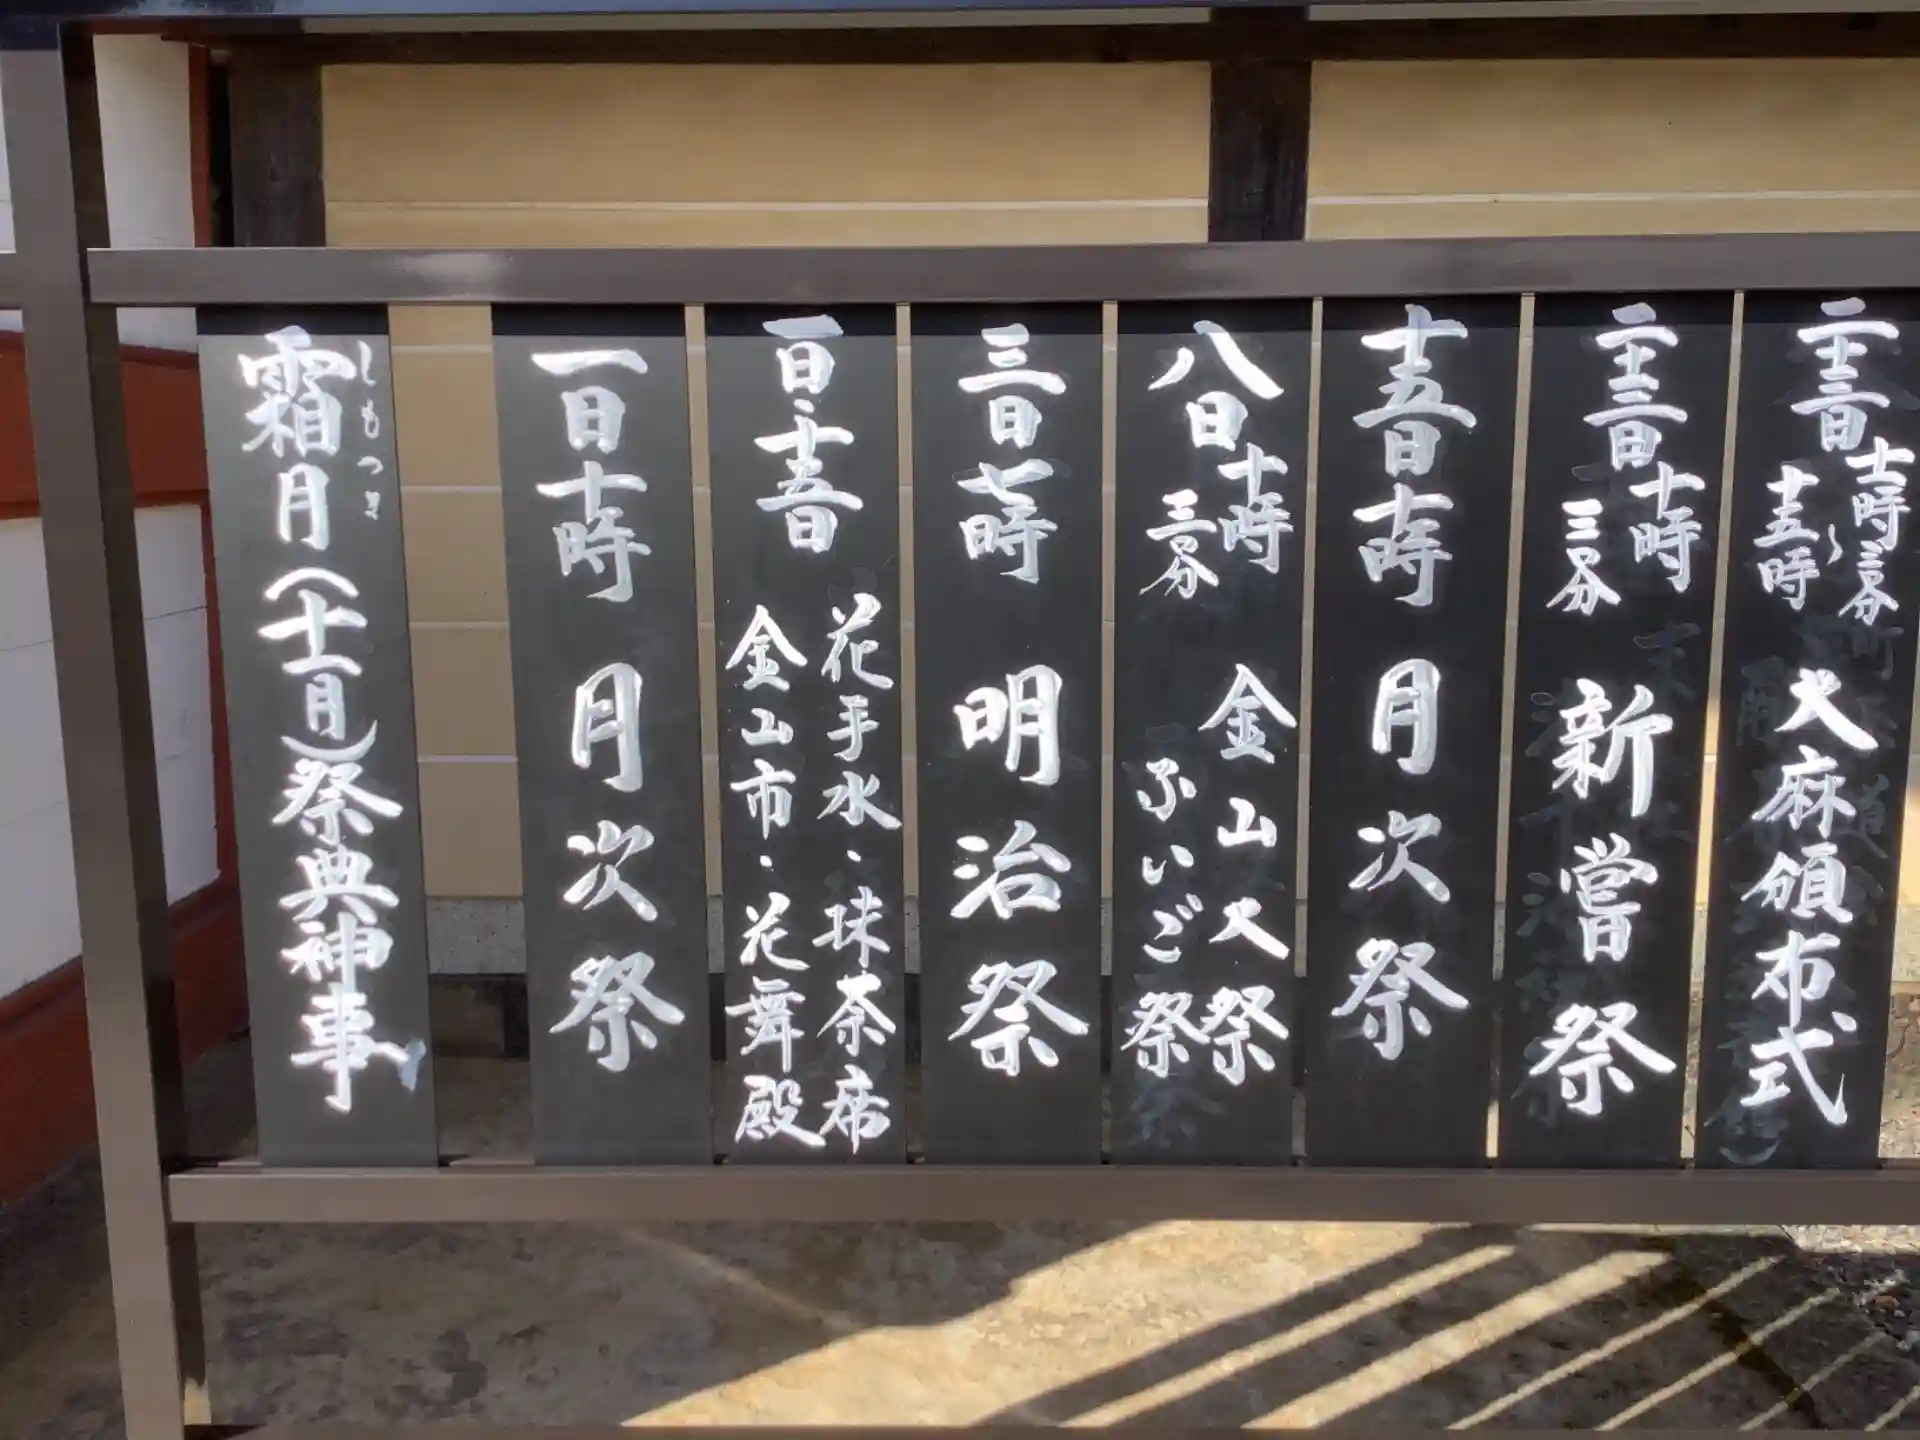 霜月(十一月)祭典神事
しもつき
一日十時 月次祭
一日・十五日 花手水・珠茶席
金山市・花舞殿
三日七時 明治祭
八日 十時三〇分 金山大祭
ふいご祭
十五日十時 月次祭
二十三日 十時三〇分 新嘗祭
二十三日 十一時三〇分〜十五時 大麻頒布式